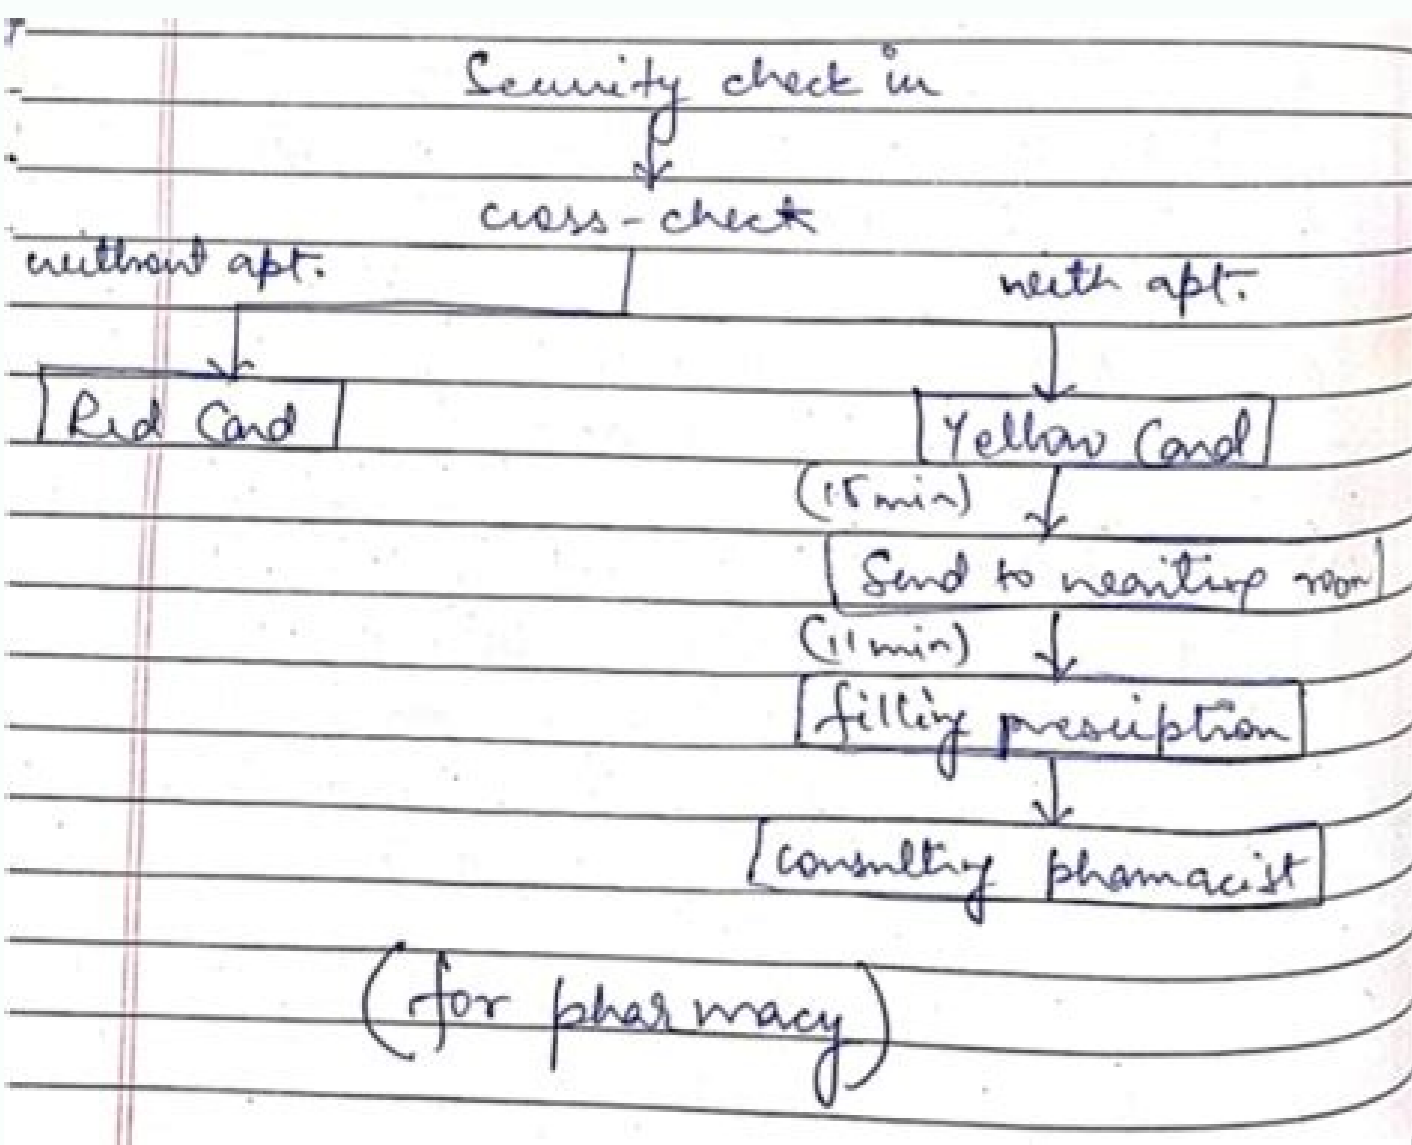 Security check in
cross-check
without apt.
with apt.
Red Card
Yellow Card
(15 min)
Send to waiting room
(11 min)
filling presciption
consulting phamacist
(for pharmacy)